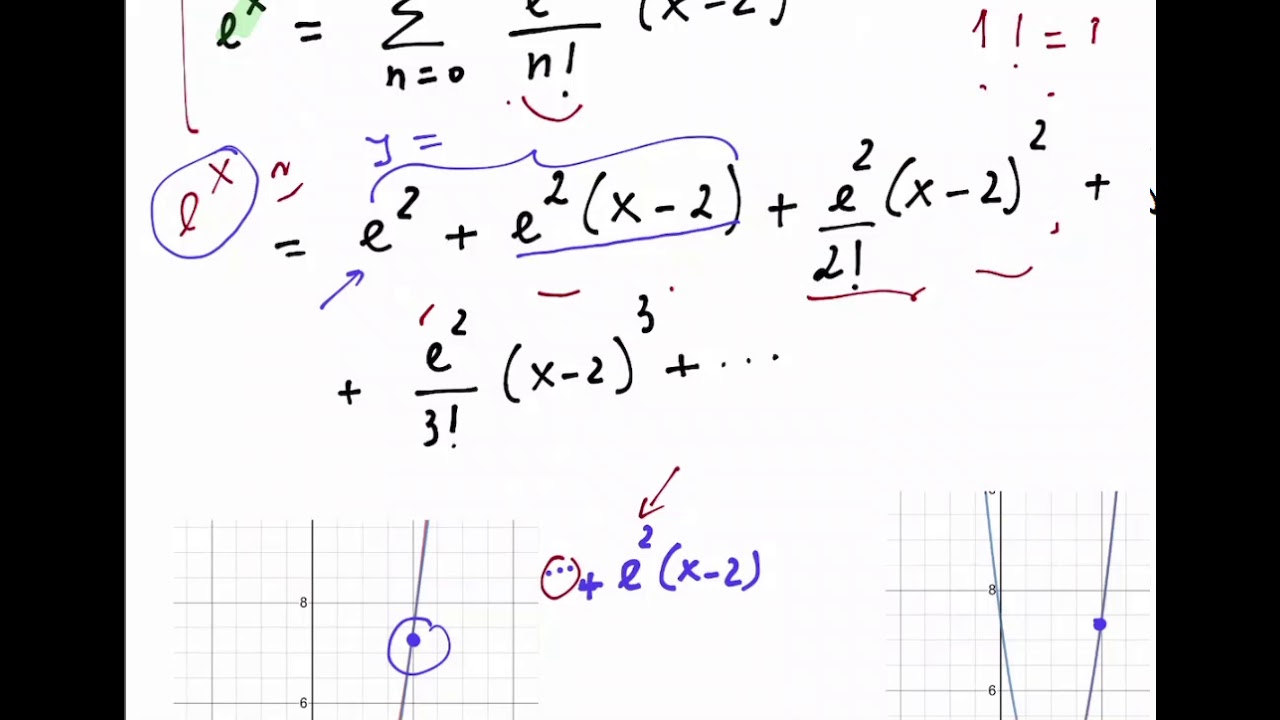 e^x = ∑ e (x-2)
n=0 n!
1! = 1
y =
e^x ≈ = e^2 + e^2(x-2) + e^2/2! (x-2)^2 +
+ e^2/3! (x-2)^3 + ...
... + e^2(x-2)
8
6
8
6